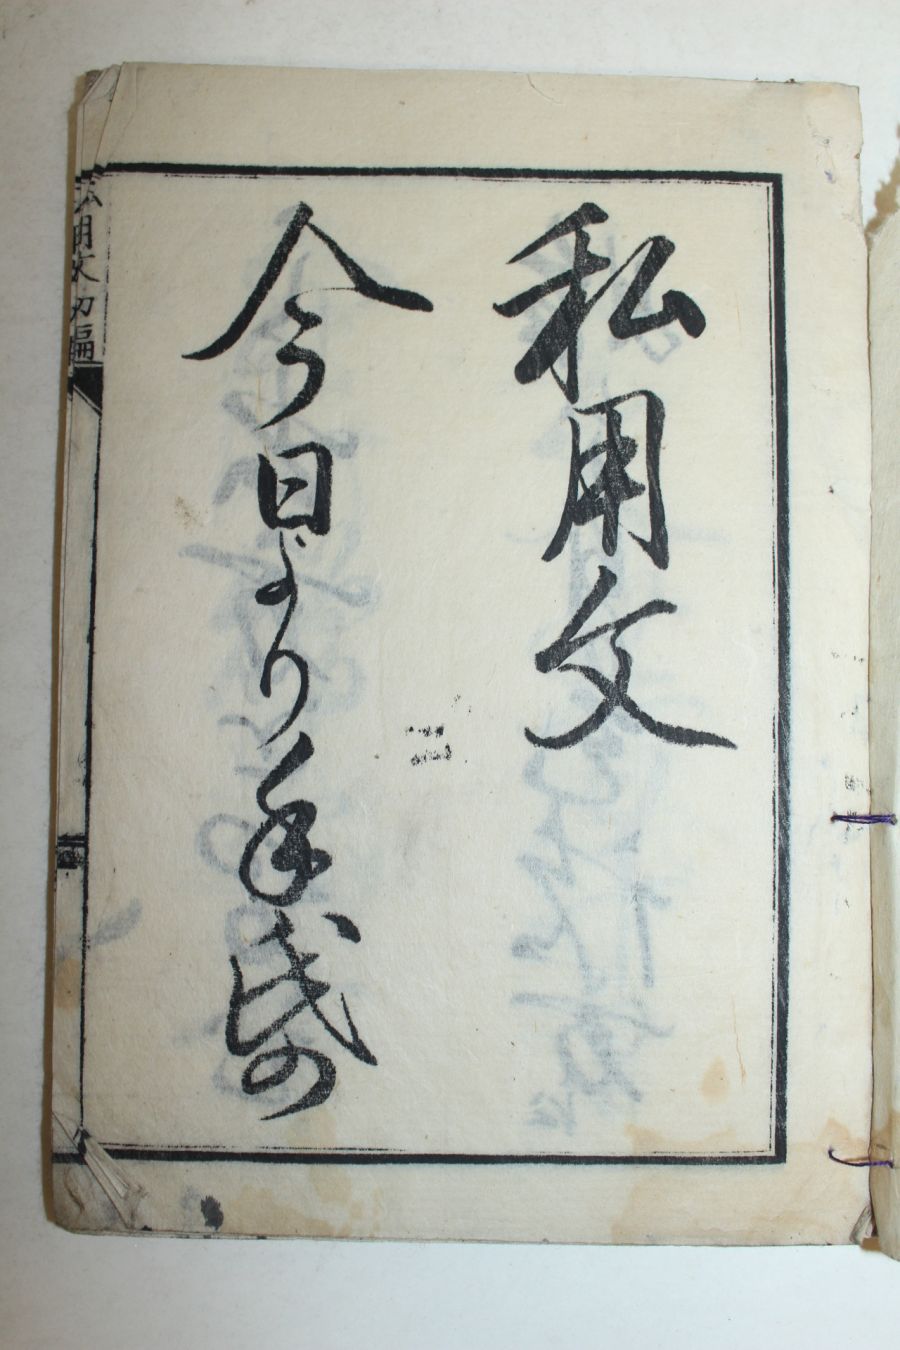 私用文
今日より手代の
私用文初編